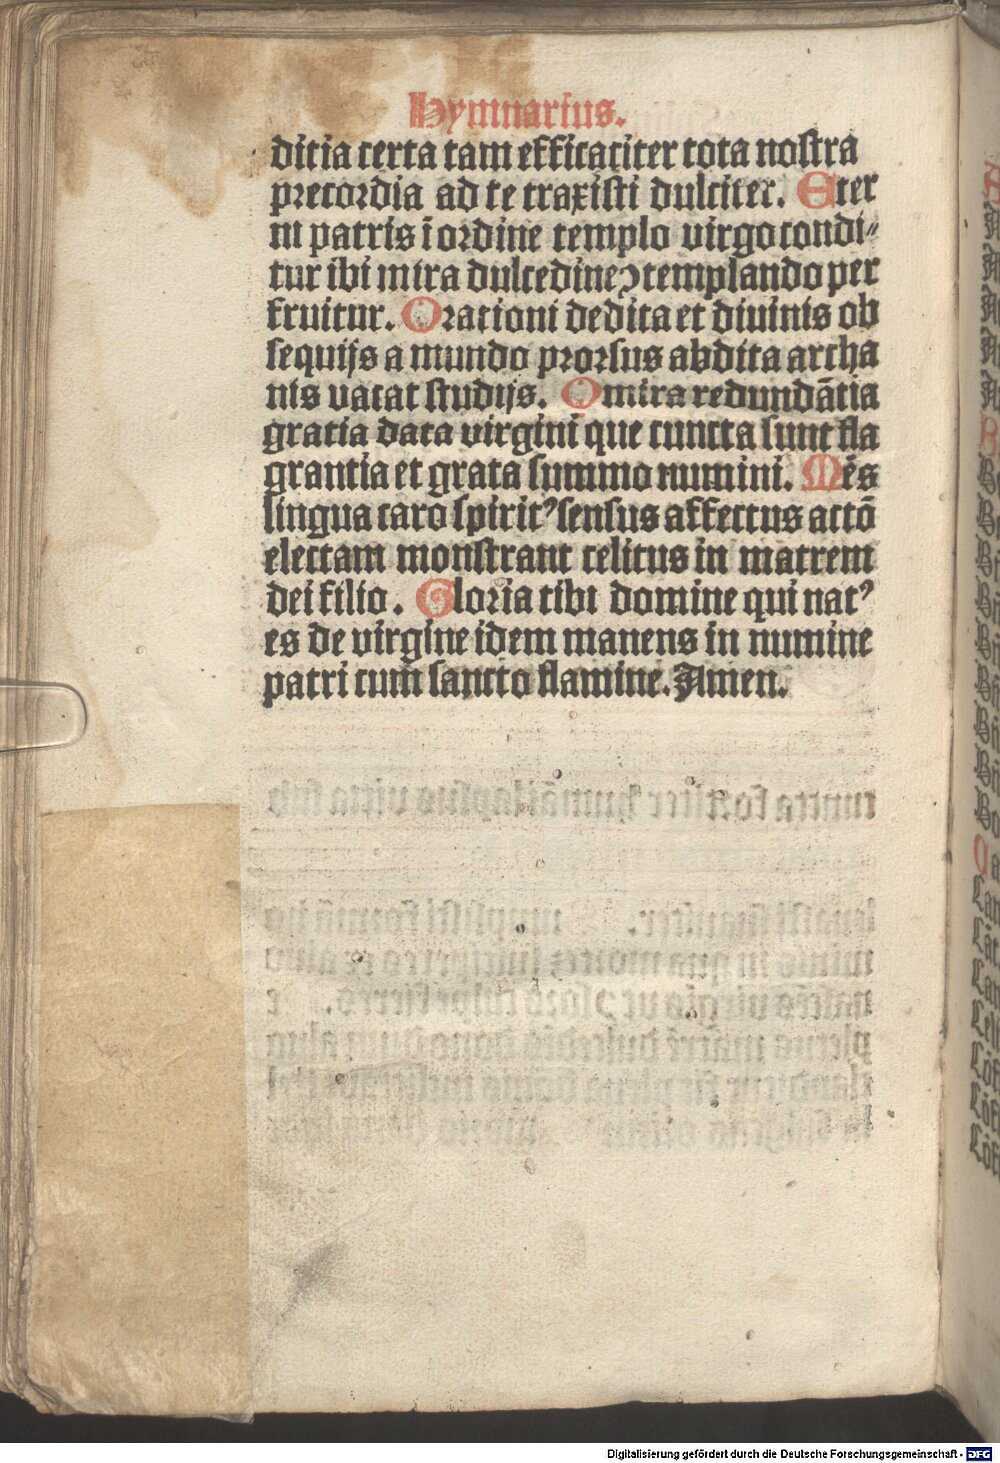 Hymnarius.
ditia certa tam efficaciter tota nostra
precordia ad te traxisti dulciter. Eter
ni patris ī ordine templo virgo condi⸗
tur ibi mira dulcedine ꝯtemplando per
fruitur. Orationi dedita et diuinis ob
sequijs a mundo prorsus abdita archa
nis vacat studijs. O mira redundātia
gratia data virgini que cuncta sunt fla
grantia et grata summo numini. Mēs
lingua caro spiritꝰ sensus affectus actō
electam monstrant celitus in matrem
dei filio. Gloria tibi domine qui natꝰ
es de virgine idem manens in numine
patri cum sancto flamine. Amen.
Digitalisierung gefördert durch die Deutsche Forschungsgemeinschaft - DFG